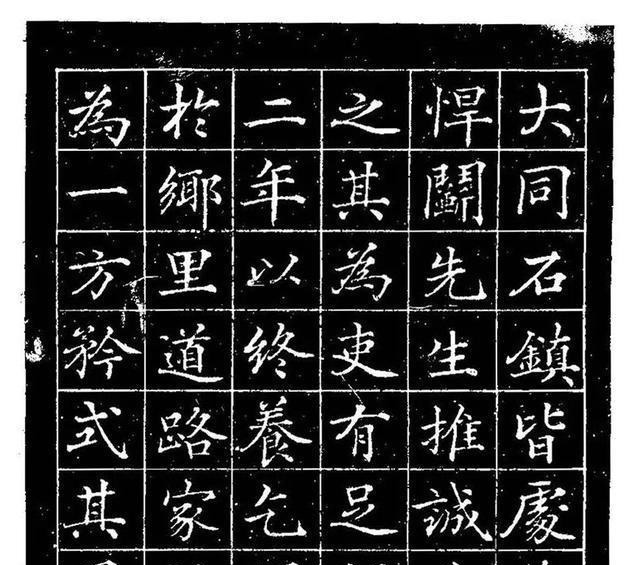 大同石鎮皆處
悍鬭先生推誠
之其為吏有足
二年以終養乞
於鄉里道路家
為一方矜式其